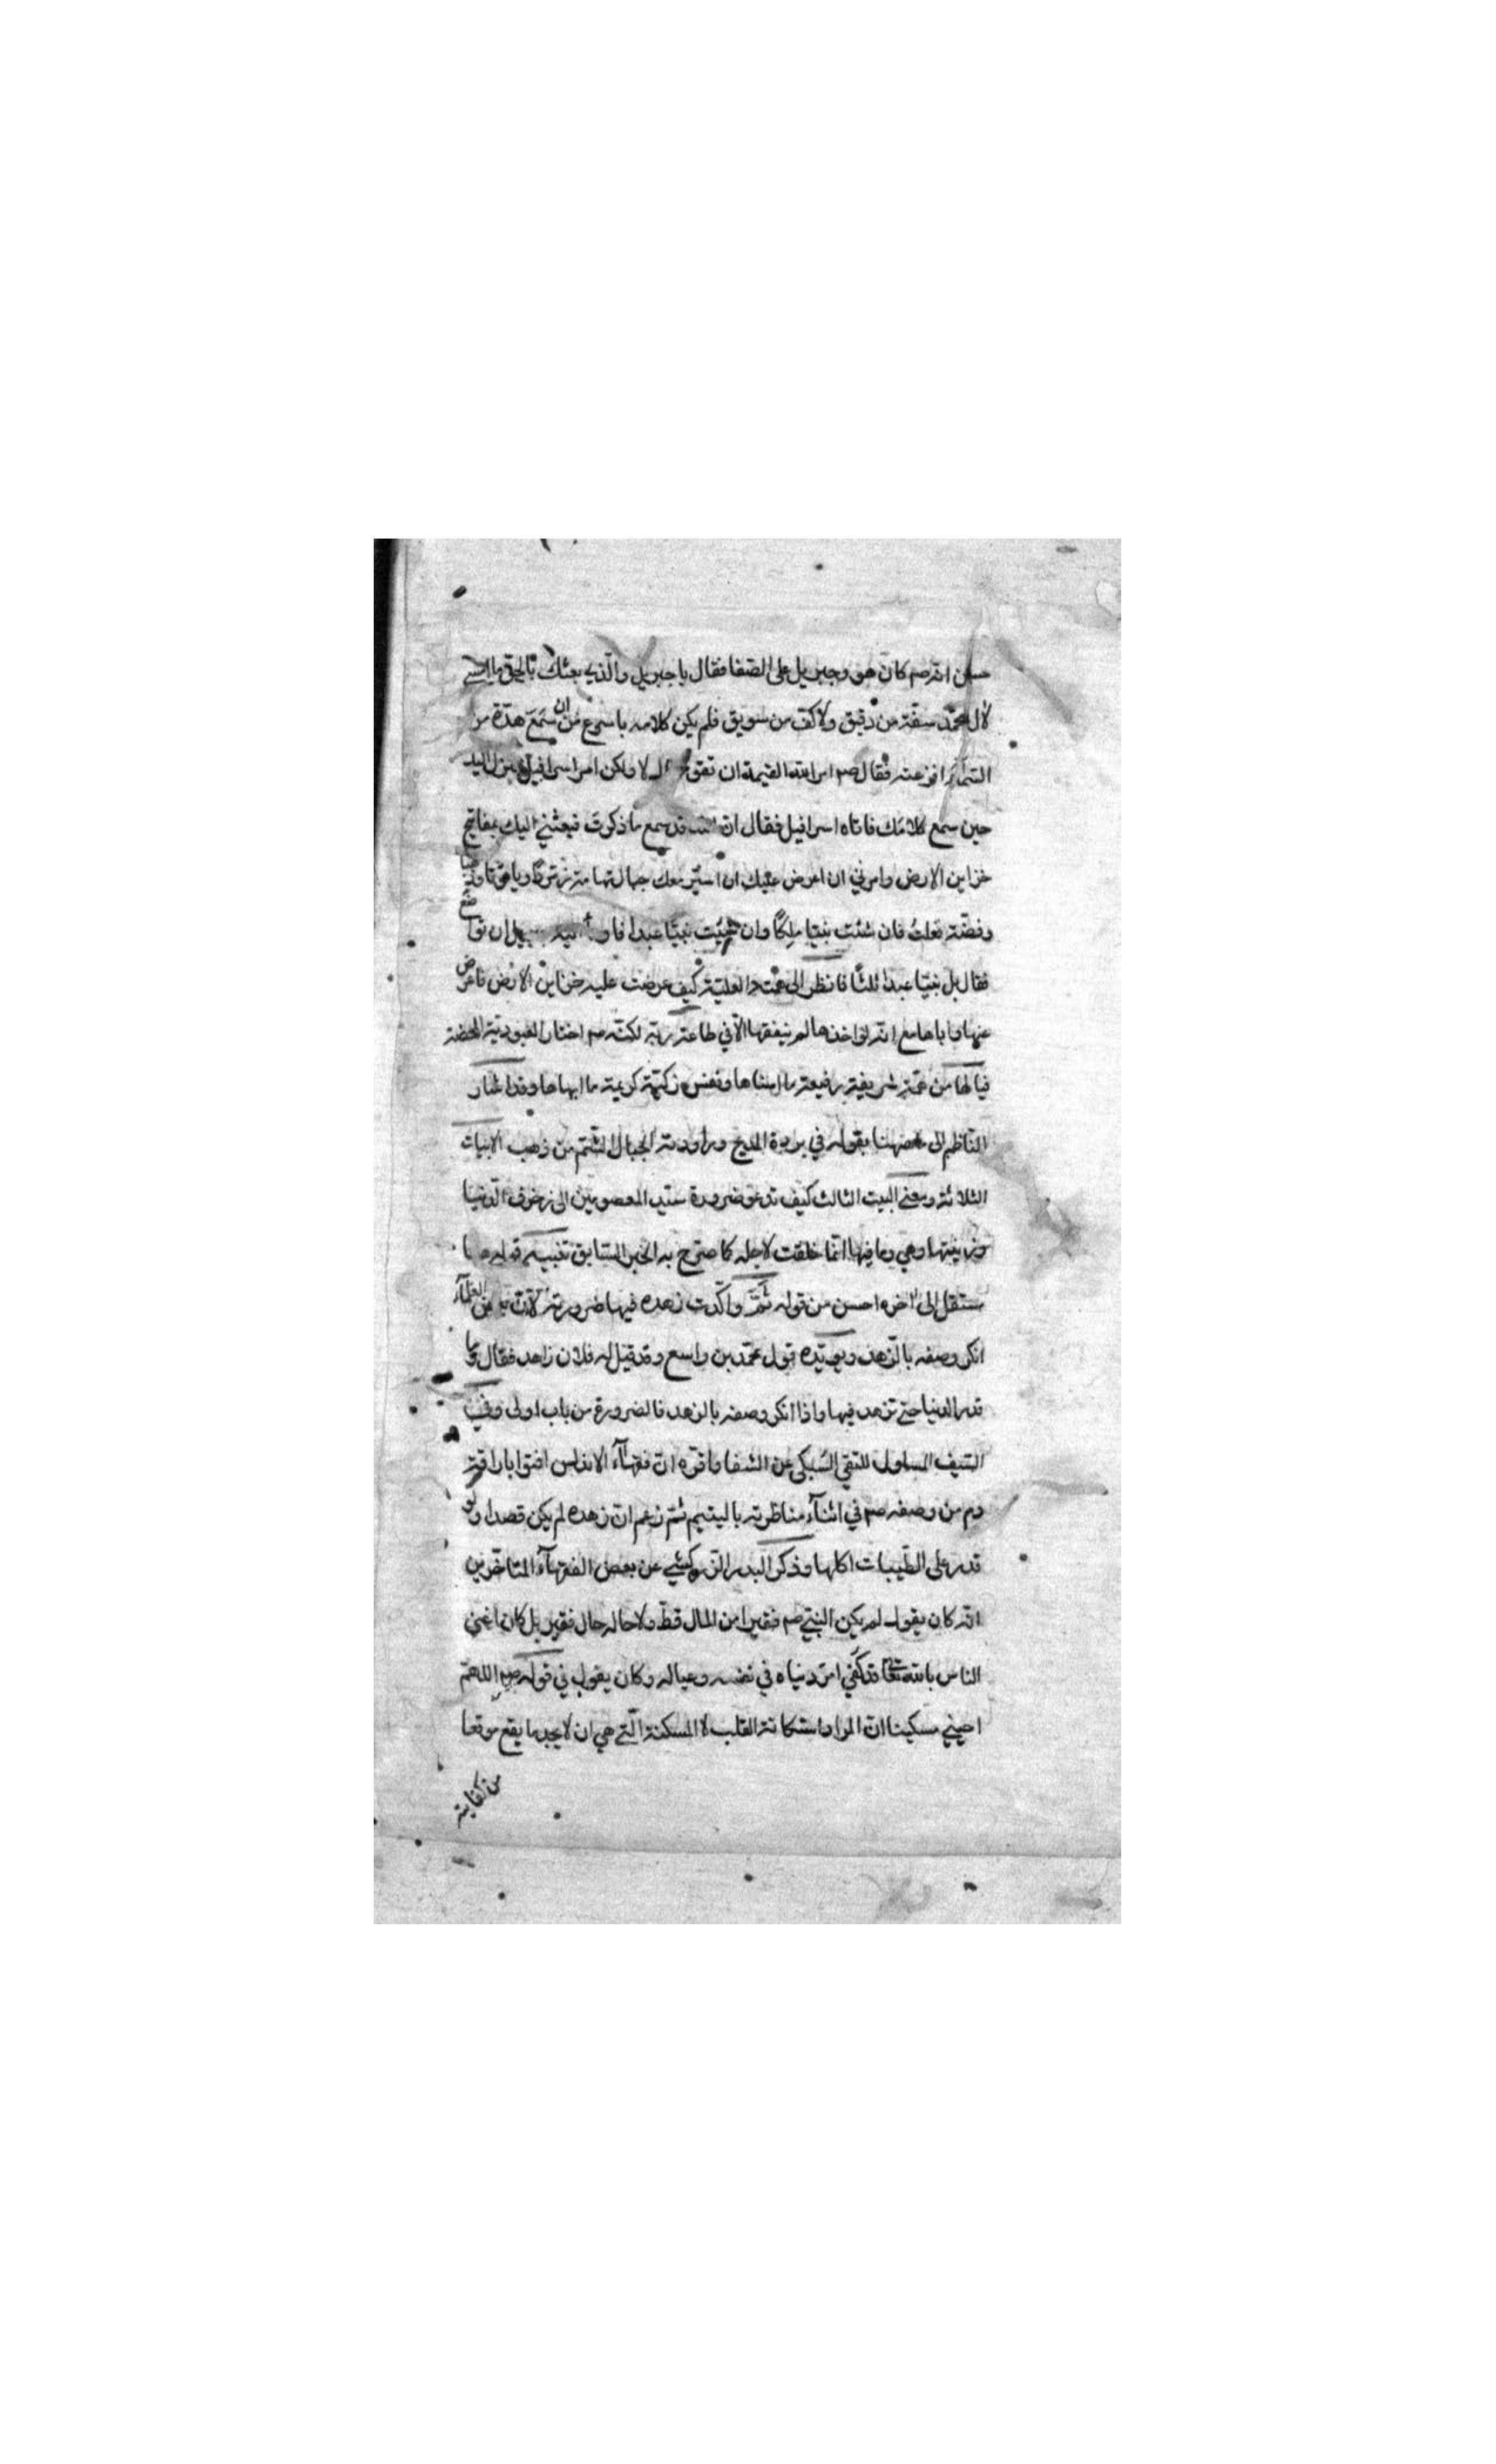 حسن انه صم كان هو وجبريل على الصفا فقال يا جبريل والذي بعثك بالحق ما امسى
لآل محمد سفة من دقيق ولا كف من سويق فلم يكن كلامه باسرع من ان سمع هدة من
السمآء افزعته فقال صم امر الله القيمة ان تقوم قال لا ولكن امر اسرافيل فنزل اليك
حين سمع كلامك فاتاه اسرافيل فقال ان الله قد سمع ما ذكرت فبعثني اليك بمفاتيح
خزاين الارض وامرني ان اعرض عليك ان اسير معك جبال تهامة زمردا وياقوتا وذهبا
وفضة فعلت فان شئت نبيا ملكا وان شئت نبيا عبدا فاومأ اليه جبريل ان تواضع
فقال بل نبيا عبدا ثلثا فانظر الى همته العلية كيف عرضت عليه خزاين الارض فاعرض
عنها واباها مع انه لو اخذها لم ينفقها الا في طاعة ربه لكنه صم اختار العبودية المحضة
فيا لها من همة شريفة رفيعة ما اسناها ونفس زكية كريمة ما ابهاها وقد اشار
الناظم الى بعض هذا بقوله في بردة المديح وراودته الجبال الشم من ذهب الابيات
الثلاثة ومعنى البيت الثالث كيف تدعو ضرورة سيد المعصومين الى زخرف الدنيا
وزينتها وهي وما فيها انما خلقت لاجله كما صرح به الخبر السابق تنبيه قوله هنا
مستقل الى اخره احسن من قوله ثم واكدت زهده فيها ضرورته لان بعض العلمآء
انكر وصفه بالزهد ويؤيده قول محمد بن واسع وقد قيل له فلان زاهد فقال وما
قدر الدنيا حتى تزهد فيها واذا انكر وصفه بالزهد فالضرورة من باب اولى وفي
السيف المسلول للتقي السبكي عن الشفا واقره ان فقهآء الاندلس افتوا باراقة
دم من وصفه صم في اثنآء مناظرته باليتيم ثم زعم ان زهده لم يكن قصدا ولو
قدر على الطيبات اكلها وذكر البدر الزركشي عن بعض الفقهآء المتاخرين
انه كان يقول لم يكن النبي صم فقيرا من المال قط ولا حاله حال فقير بل كان اغنى
الناس بالله تعالى قد كفي امر دنياه في نفسه وعياله وكان يقول في قوله صم اللهم
احيني مسكينا ان المراد استكانة القلب لا المسكنة التي هي ان لا يجد ما يقع موقعا
من كفايته